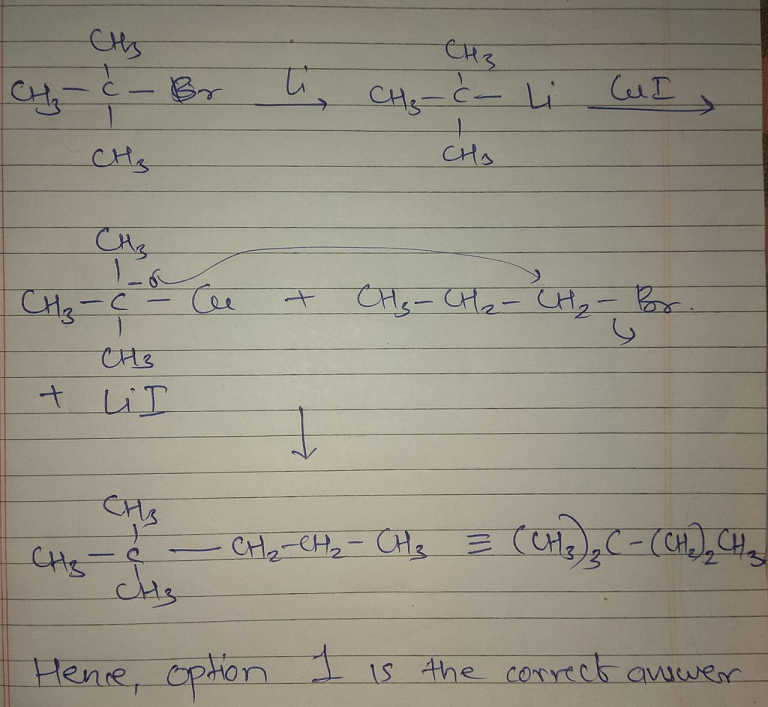 CH3
CH3 – C – Br Li → CH3 – C – Li CuI →
CH3
CH3
CH3
CH3
CH3 – C –δ – Cu + CH3 – CH2 – CH2 – Br.
CH3
+ LiI
↓
CH3
CH3 – C — CH2–CH2– CH3 ≡ (CH3)3C–(CH2)2CH3
CH3
Hence, option 1 is the correct answer